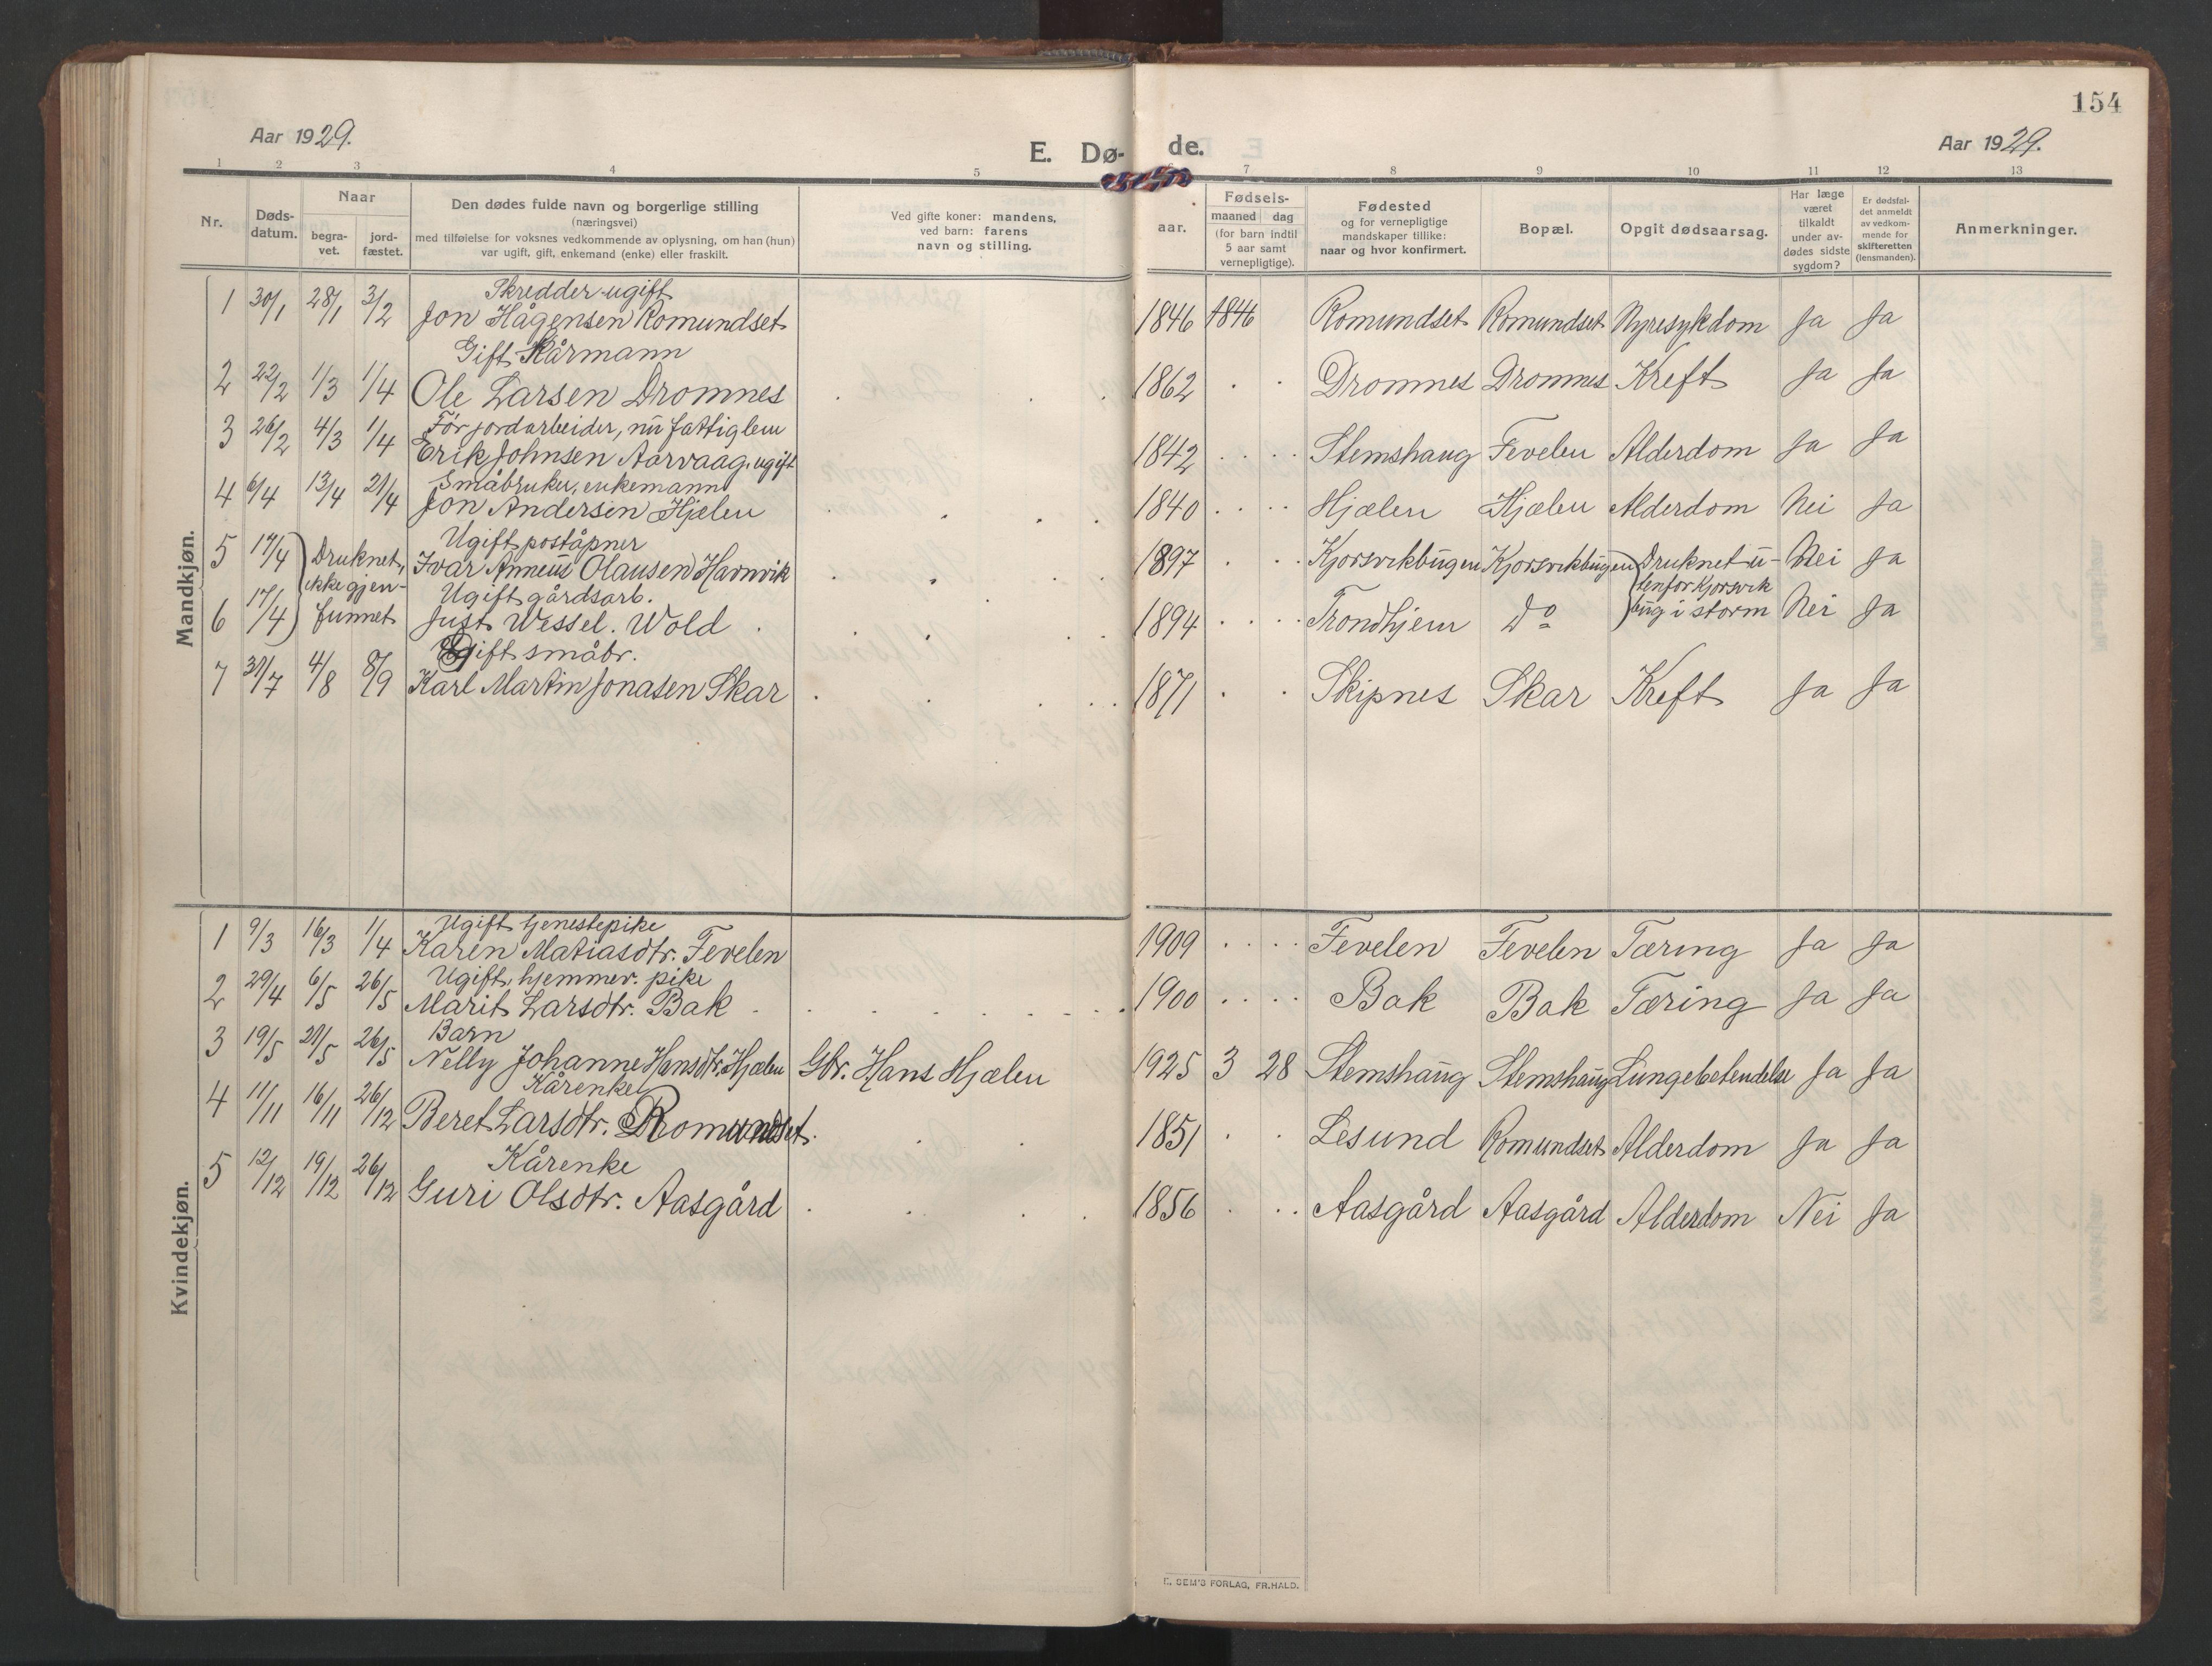 154
Aar 1929.
E. Dø-
de.
Aar 1929.
1 2 3 4 5 7 8 9 10 11 12 13
Nr.
Døds-
datum.
Naar
begra-
vet.
jord-
fæstet.
Den dødes fulde navn og borgerlige stilling
(næringsvei)
med tilføielse for voksnes vedkommende av oplysning, om han (hun)
var ugift, gift, enkemand (enke) eller fraskilt.
Ved gifte koner: mandens,
ved barn: farens
navn og stilling.
aar.
Fødsels-
maaned dag
(for barn indtil
5 aar samt
vernepligtige).
Fødested
og for vernepligtige
mandskaper tillike:
naar og hvor konfirmert.
Bopæl.
Opgit dødsaarsag.
Har læge
været
tilkaldt
under av-
dødes sidste
sygdom?
Er dødsfal-
det anmeldt
av vedkom-
mende for
skifteretten
(lensmanden).
Anmerkninger.
Mandkjøn.
Skredder ugift
1 30/1 28/1 3/2 Jon Hågensen Romundset 1846 1846 Romundset Romundset Nyresykdom Ja Ja
Gift Kårmann
2 22/2 1/3 1/4 Ole Larsen Dromnes 1862 Dromnes Dromnes Kreft Ja Ja
Før jordarbeider, nu fattiglem
3 26/2 4/3 1/4 Erik Johnsen Aarvaag, ugift 1842 Stemshaug Fevelen Alderdom Ja Ja
Småbruker, enkemann
4 6/4 13/4 21/4 Jon Andersen Hjælen 1840 Hjælen Hjælen Alderdom Nei Ja
Ugift poståpner
5 17/4 Druknet, Ivar Olausen Havnvik 1897 Kjorsvikbugen Kjorsvikbugen Druknet u- Nei Ja
ikke gjen- Ugift gårdsarb. tenfor Kjorsvik
6 17/4 funnet Just Wessel. Wold 1894 Trondhjem Do bug i storm Nei Ja
Gift småbr.
7 31/7 4/8 8/9 Karl Martin Jonasen Skar 1871 Skipnes Skar Kreft Ja Ja
Kvindekjøn.
Ugift tjenestepike
1 9/3 16/3 1/4 Karen Matiasdtr. Fevelen 1909 Fevelen Fevelen Tæring Ja Ja
Ugift, hjemmev. pike
2 29/4 6/5 26/5 Marit Larsdtr. Bak 1900 Bak Bak Tæring Ja Ja
Barn
3 19/5 21/5 26/5 Nelly Johanne Hansdtr. Hjælen Gbr. Hans Hjælen 1925 3 28 Stemshaug Stemshaug Lungebetendelse Ja Ja
Kårenke
4 11/11 16/11 26/12 Beret Larsdtr. Romundset 1851 Lesund Romundset Alderdom Ja Ja
Kårenke
5 12/12 19/12 26/12 Guri Olsdtr. Aasgård 1856 Aasgård Aasgård Alderdom Nei Ja
E. SEM'S FORLAG, FR.HALD.